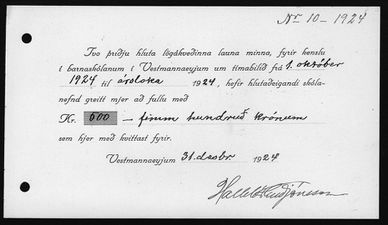 No 10 - 1924
Tvo þriðju hluta lögákveðinna launa minna, fyrir kenslu
í barnaskólanum í Vestmannaeyjum um tímabilið frá 1. október
1924 til ársloka 1924, hefir hlutaðeigandi skóla-
nefnd greitt mjer að fullu með
Kr. 500 – fimm hundruð krónum
sem hjer með kvittast fyrir.
Vestmannaeyjum 31. desbr 1924